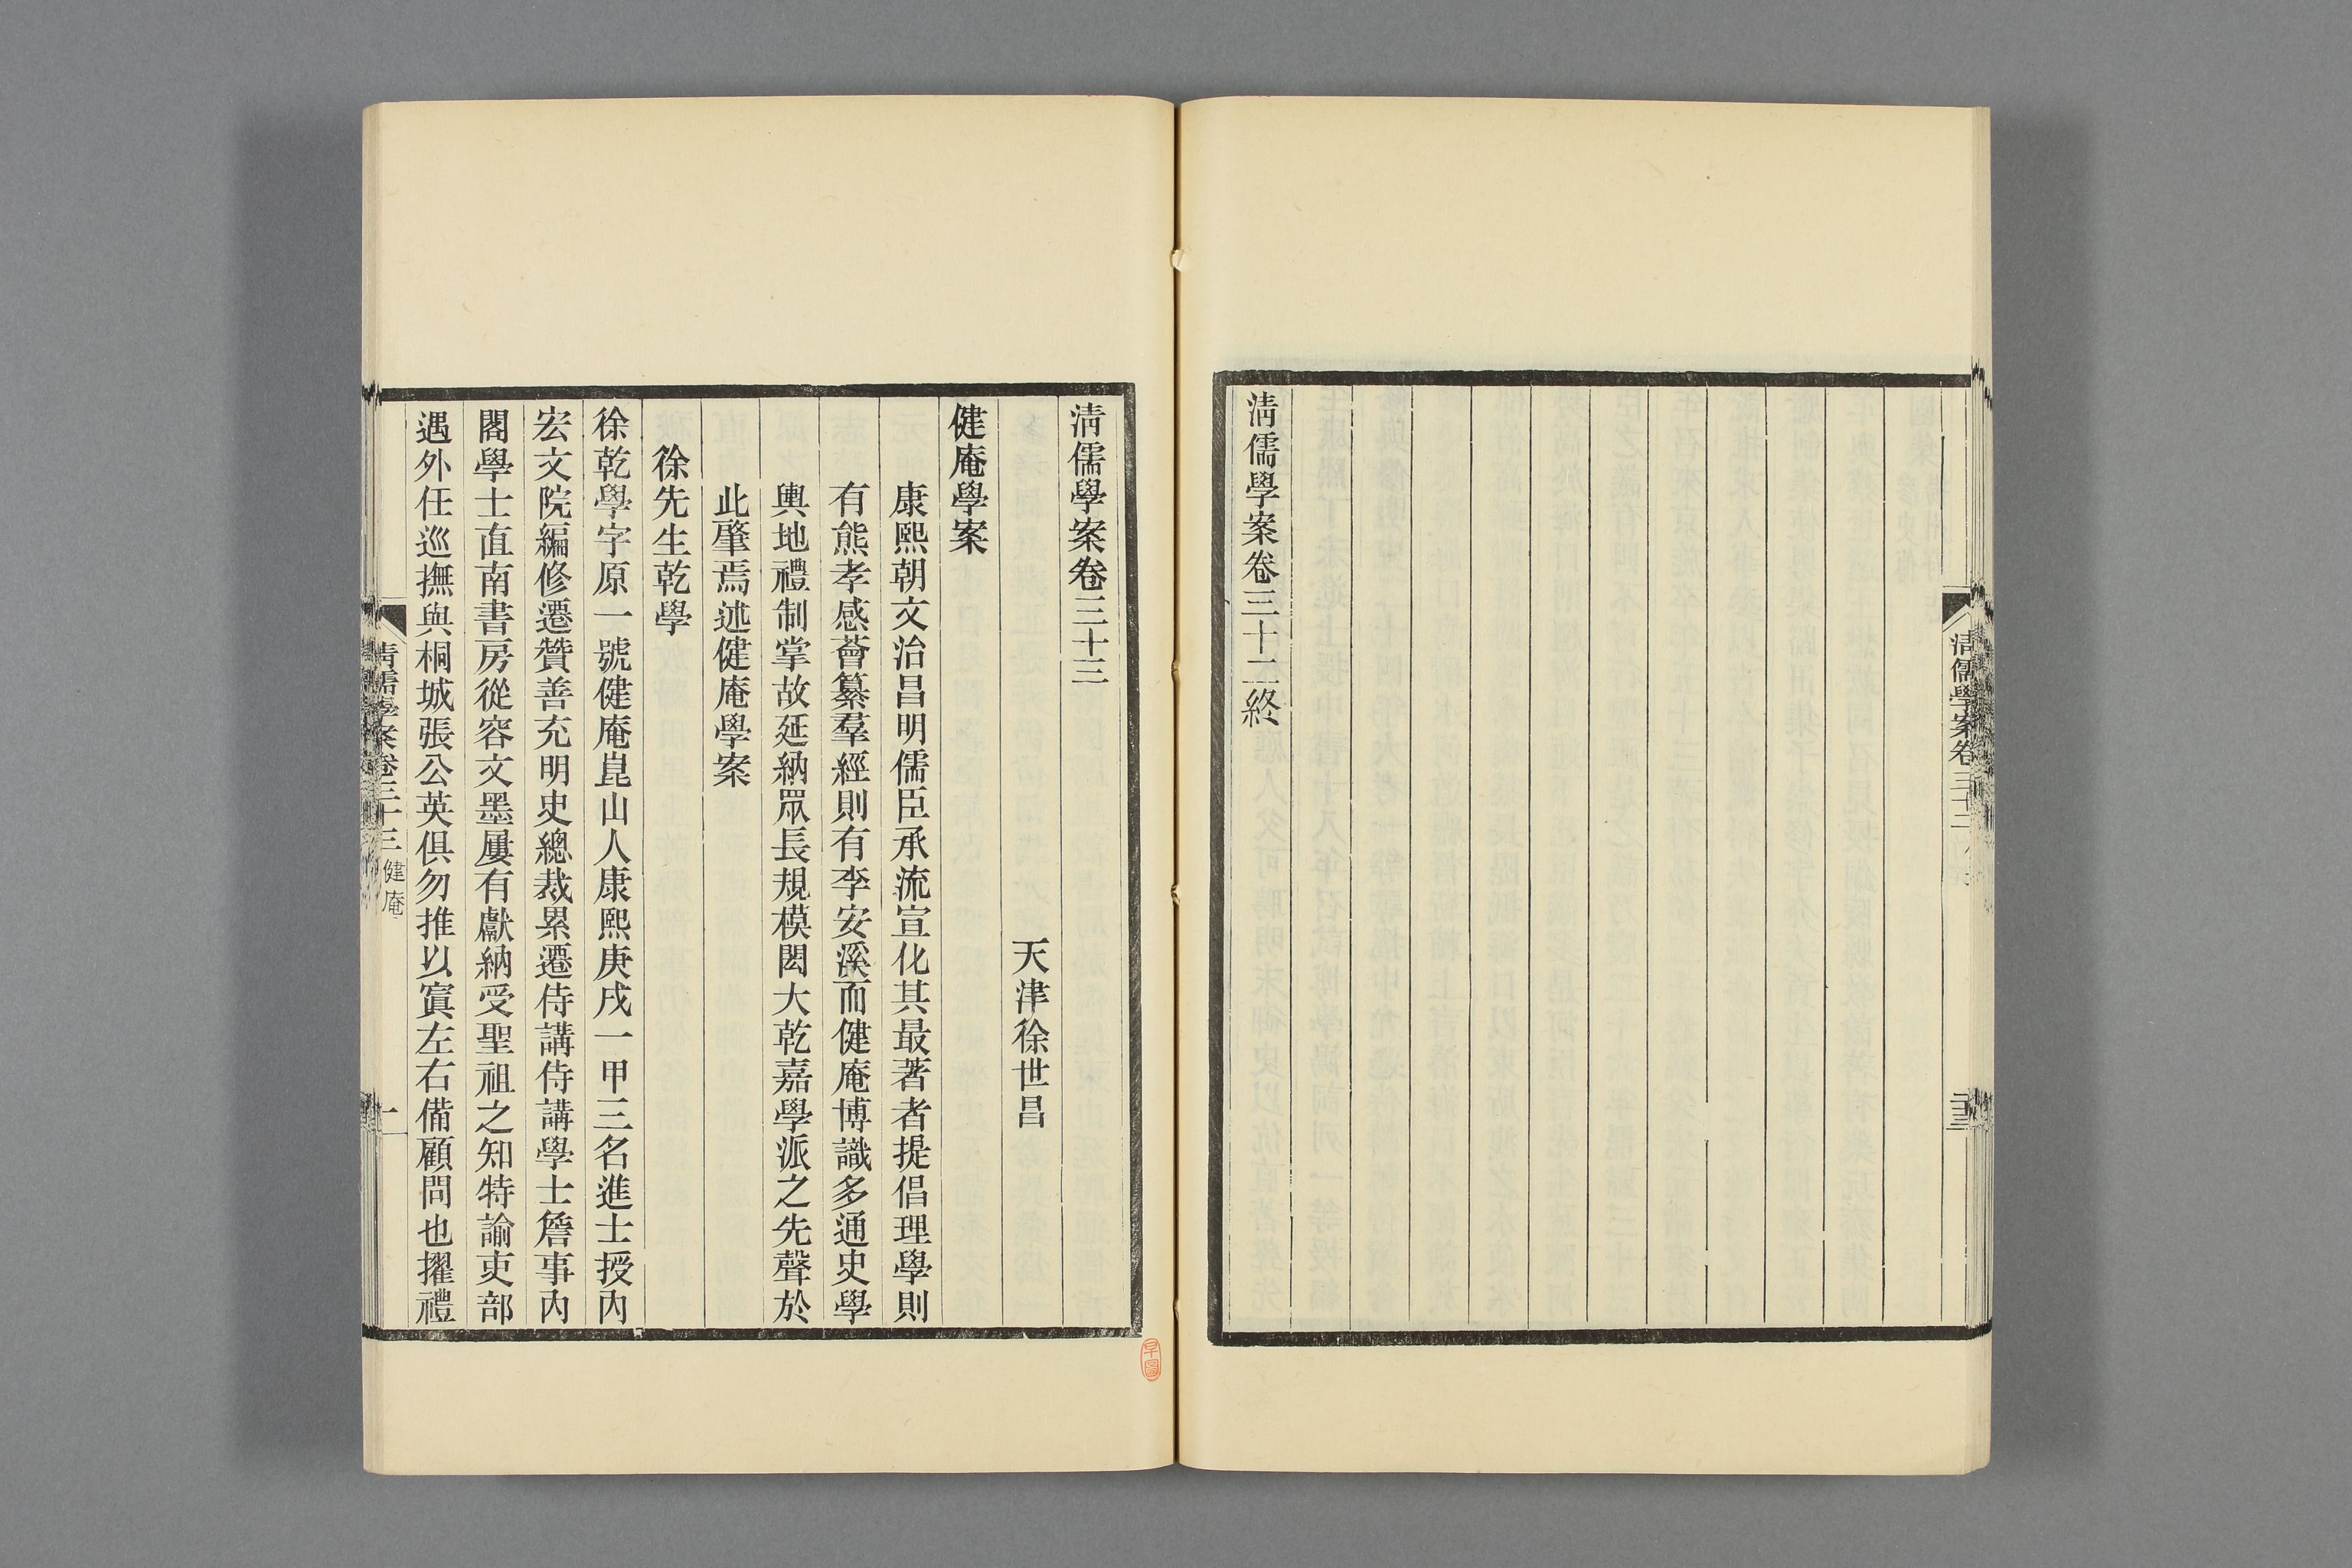 清儒學案卷三十二
三十三
清儒學案卷三十二終
清儒學案卷三十三
天津徐世昌
健庵學案
康熙朝文治昌明儒臣承流宣化其最著者提倡理學則
有熊孝感薈纂羣經則有李安溪而健庵博識多通史學
輿地禮制掌故延納眾長規模閎大乾嘉學派之先聲於
此肇焉述健庵學案
徐先生乾學
徐乾學字原一號健庵崑山人康熙庚戌一甲三名進士授內
宏文院編修遷贊善充明史總裁累遷侍講侍講學士詹事內
閣學士直南書房從容文墨屢有獻納受聖祖之知特諭吏部
遇外任巡撫與桐城張公英俱勿推以寘左右備顧問也擢禮
清儒學案卷三十三
健庵
一